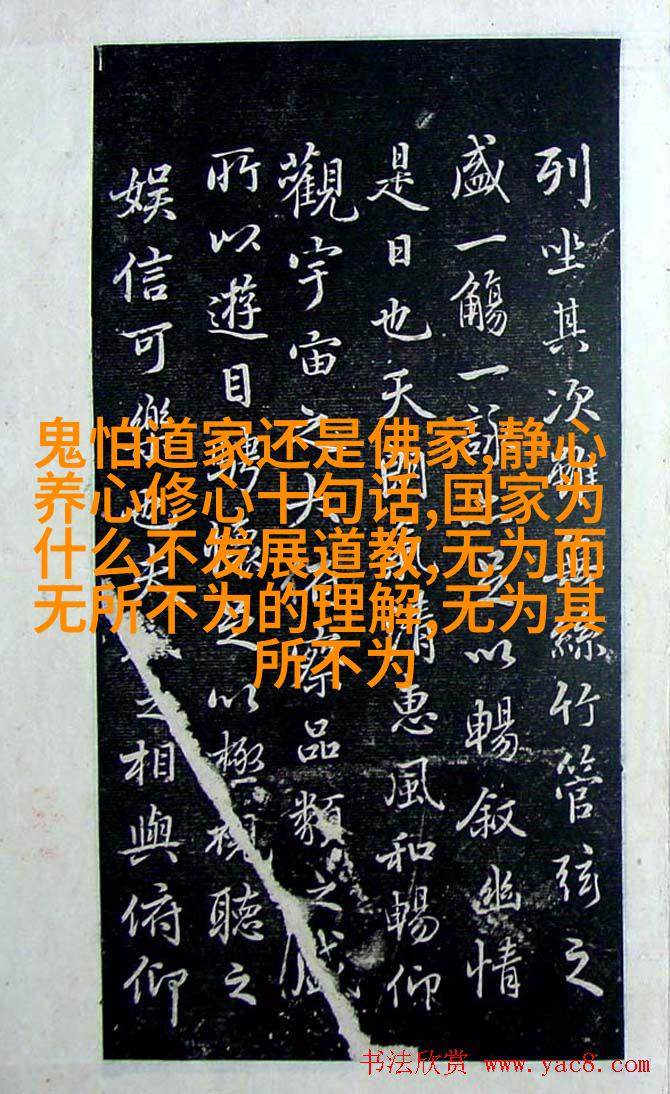 列坐其次雖無絲竹管弦之
盛一觴一詠亦足以暢叙幽情
是日也天朗氣清惠風和暢仰
觀宇宙之大俯察品類之盛
所以遊目騁懷足以極視聽之
娛信可樂也夫之相與俯仰
鬼怕道家还是佛家,静心
养心修心十句话,国家为
什么不发展道教,无为而
无所不为的理解,无为其
所不为
书法欣赏 www.yac8.com